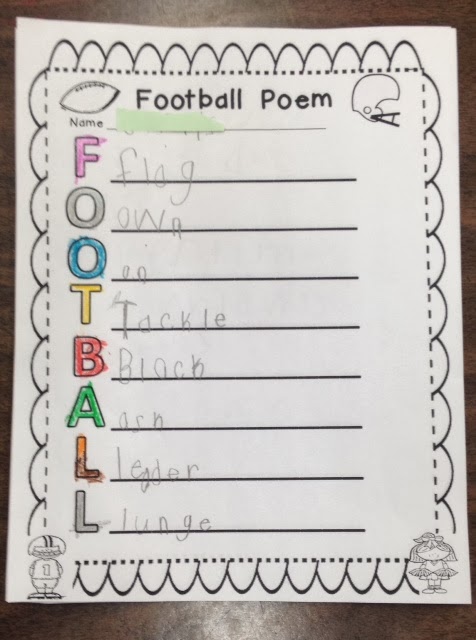 Football Poem
Name
F flag
O own
O on
T Tackle
B Black
A ask
L leader
L lunge
1